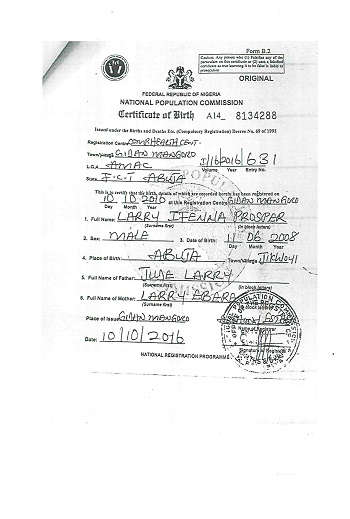 Form B.2
Caution. Any person who (1) Falsifies any of the
particulars on this certificate or (2) uses a falsified
certificate as true knowing it to be false is liable to
prosecution.
ORIGINAL
FEDERAL REPUBLIC OF NIGERIA
NATIONAL POPULATION COMMISSION
Certificate of Birth A14 8134288
Issued under the Births and Deaths Etc. (Compulsory Registration) Decree No. 69 of 1992
Registration Centre
Town/Village GIDAN MANGORO 1/16/2016/631
L.G.A AMAC Volume Year Entry No.
State F.C.T ABUJA
This is to certify that the birth, details of which are recorded herein has been registered on
10 10 2016 at this Registration Centre GIDAN MANGORO
Day Month Year
1. Full Name: LARRY IFENNA PROSPER
(Surname first) (In block letters)
2. Sex: MALE 3. Date of Birth: 11 06 2008
Day Month Year
4. Place of Birth: ABUJA Town/Village JIKWOYI
5. Full Name of Father: LARRY
(Surname first) (In block letters)
6. Full Name of Mother: LARRY
(Surname first) (In block letters)
Place of Issue GIDAN MANGORO
Name of Registrar
Date: 10/10/2016
Signature of Registrar
NATIONAL REGISTRATION PROGRAMME